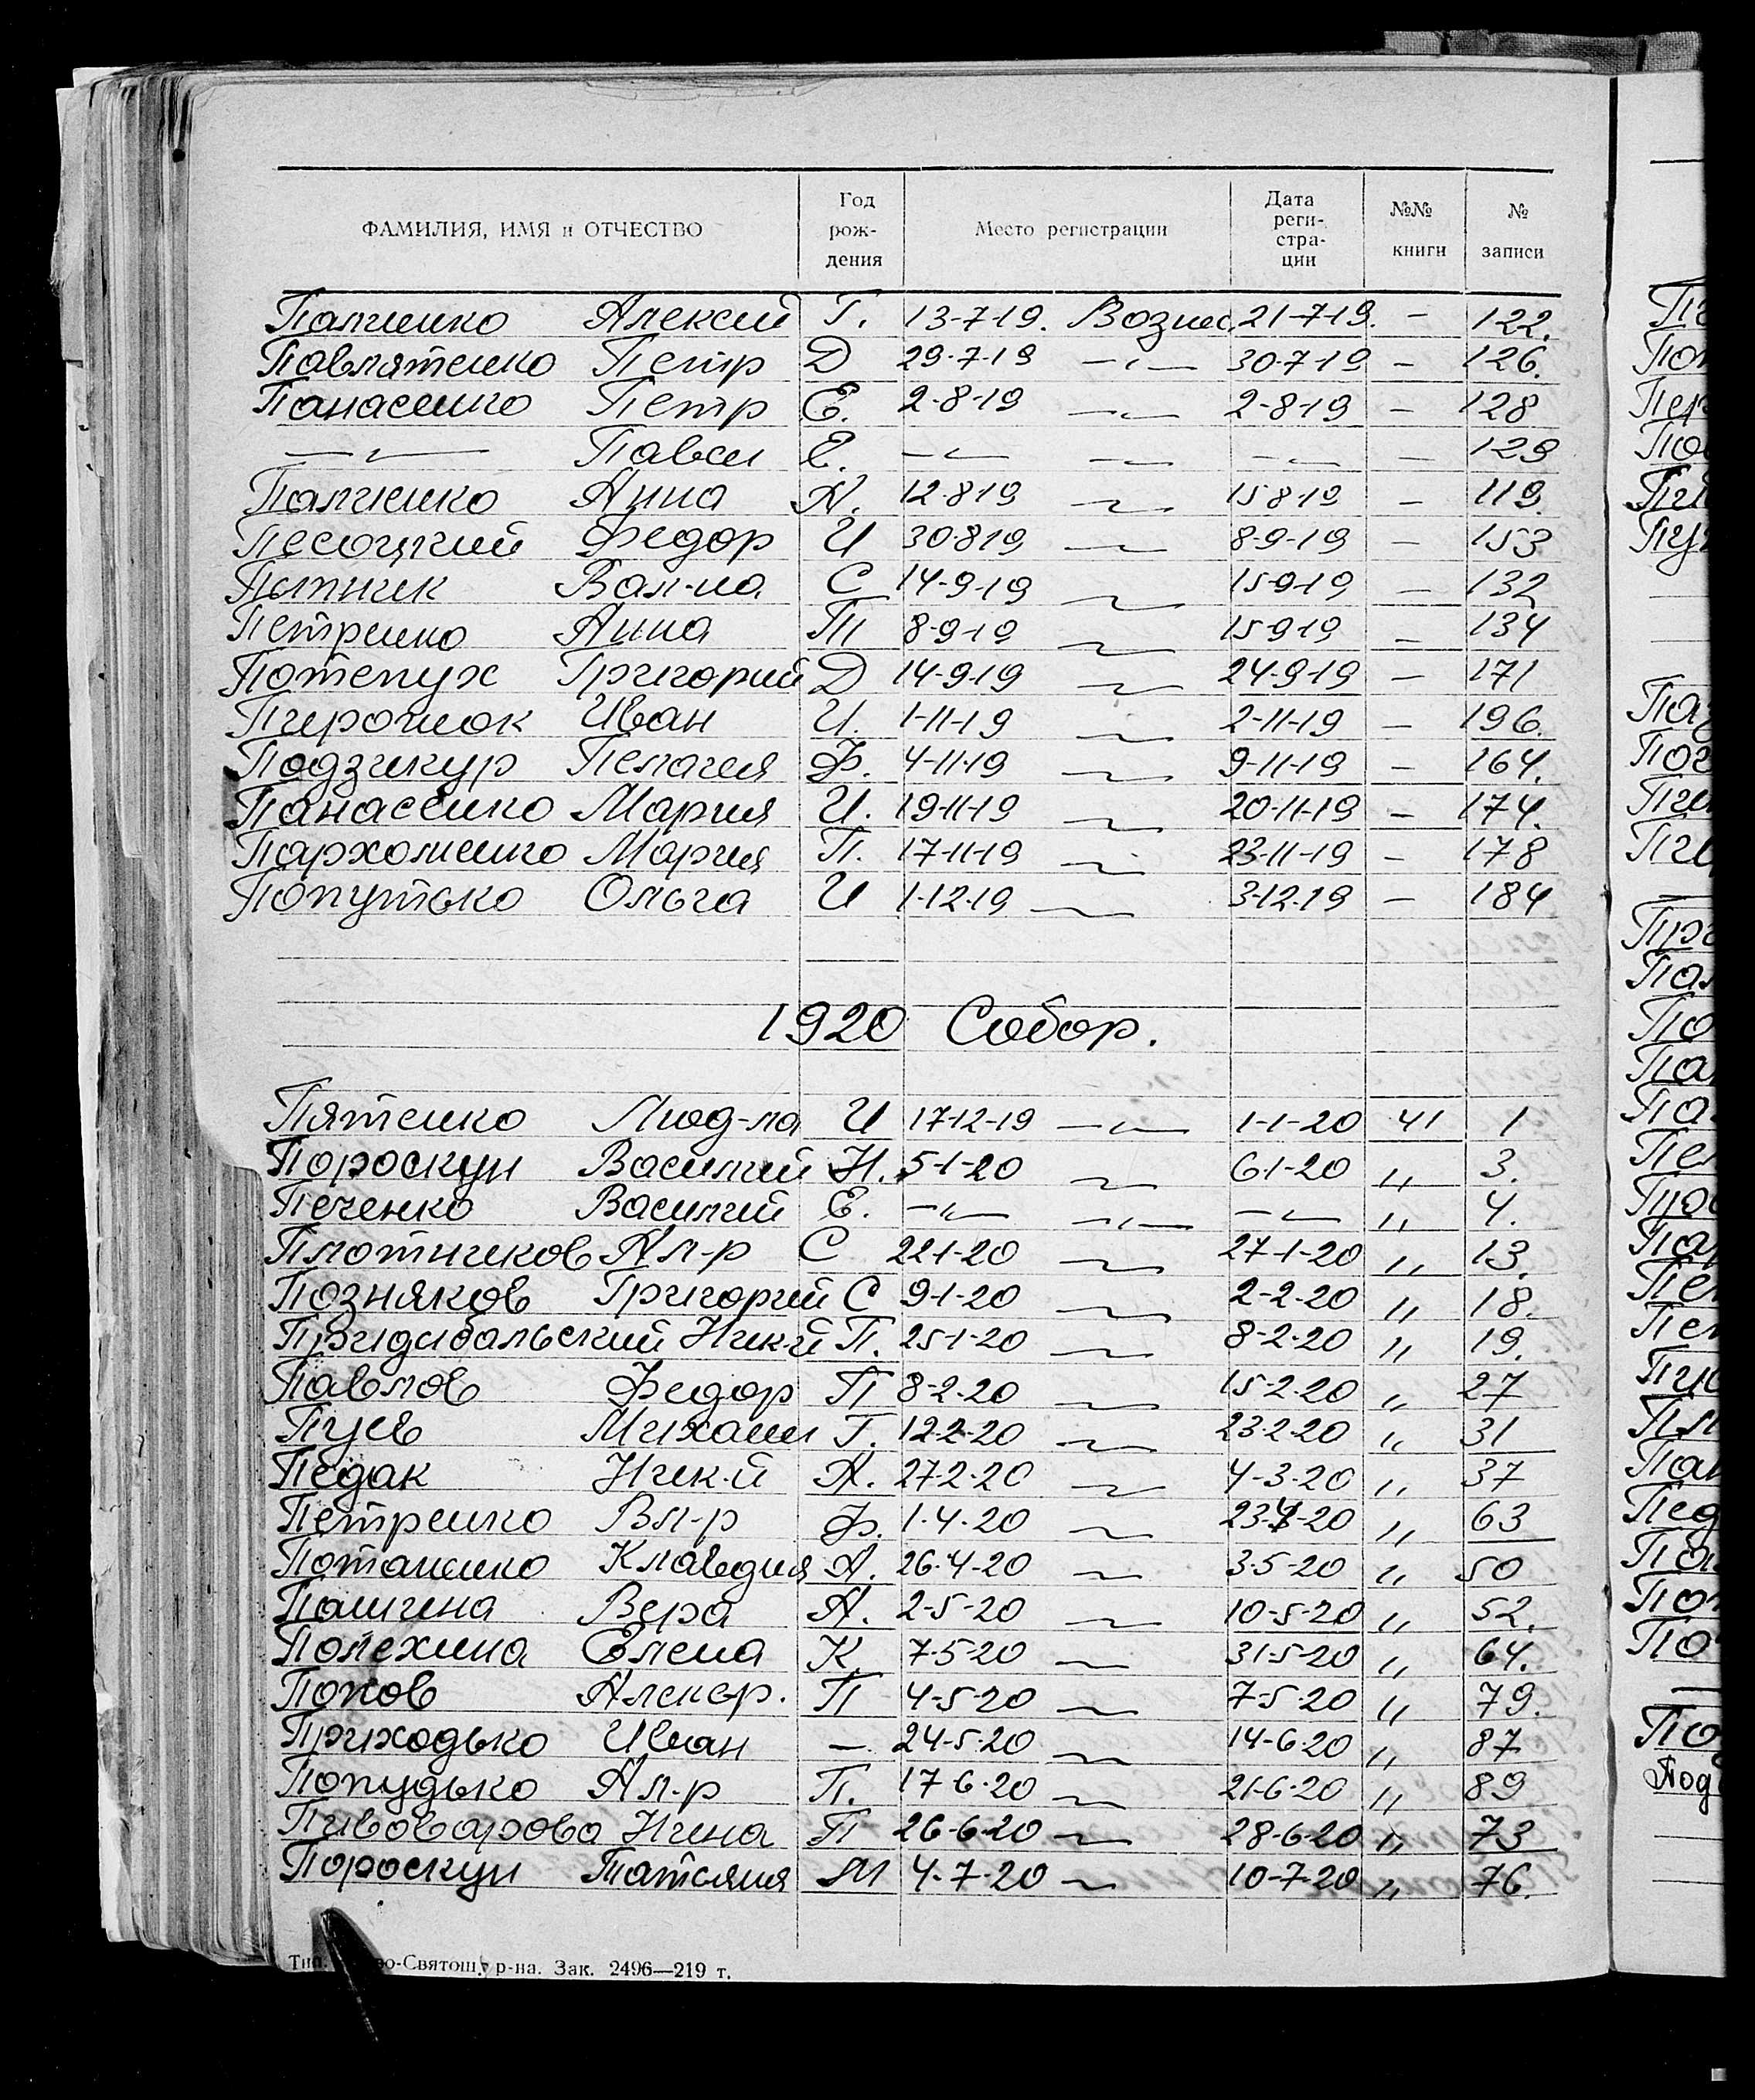 ФАМИЛИЯ, ИМЯ и ОТЧЕСТВО Год рождения Место регистрации Дата регистрации №№ книги № записи
Палиенко Алексей Г. 13-7-19. Вознес. 21-7-19. - 122.
Павлятенко Петр Д 29-7-19 -"- 30-7-19 - 126.
Панасенко Петр Е. 2-8-19 -"- 2-8-19 - 128
-"- Павел Е. -"- -"- -"- - 129
Палиенко Анна А. 12-8-19 -"- 15-8-19 - 119.
Песоцкий Федор И 30-8-19 -"- 8-9-19 - 153
Вал-на С 14-9-19 -"- 15-9-19 - 132
Петренко Анна Т 8-9-19 -"- 15-9-19 - 134
Потепух Григорий Д 14-9-19 -"- 24-9-19 - 171
Иван И. 1-11-19 -"- 2-11-19 - 196.
Подзигур Пелагея Ф. 4-11-19 -"- 9-11-19 - 164.
Панасенко Мария И. 19-11-19 -"- 20-11-19 - 174.
Пархоменко Мария П. 17-11-19 -"- 23-11-19 - 178
Попутько Ольга И 1-12-19 -"- 3-12-19 - 184
1920 Собор.
Пятенко Люд-ла И 17-12-19 -"- 1-1-20 41 1
Пороскун Василий Н. 5-1-20 -"- 6-1-20 " 3.
Печенко Василий Е. -"- -"- -"- " 4.
Плотников Ал-р С 22-1-20 -"- 27-1-20 " 13.
Позняков Григорий С 9-1-20 -"- 2-2-20 " 18.
Придибальский Ник-й П. 25-1-20 -"- 8-2-20 " 19.
Павлов Федор П 8-2-20 -"- 15-2-20 " 27
Михаил Г. 12-2-20 -"- 23-2-20 " 31
Педак Ник-й А. 27-2-20 -"- 4-3-20 " 37
Петренко Вл-р Ф. 1-4-20 -"- 23-4-20 " 63
Потапенко Клавдия А. 26-4-20 -"- 3-5-20 " 50
Пашина Вера А. 2-5-20 -"- 10-5-20 " 52.
Полехина Елена К 7-5-20 -"- 31-5-20 " 64.
Попов Алекср. П 4-5-20 -"- 7-5-20 " 79.
Приходько Иван - 24-5-20 -"- 14-6-20 " 87
Попудько Ал-р П. 17-6-20 -"- 21-6-20 " 89
Пивоварова Нина П 26-6-20 -"- 28-6-20 " 73
Пороскун Татьяна М 4-7-20 -"- 10-7-20 " 76.
-Святош. р-на. Зак. 2496—219 т.